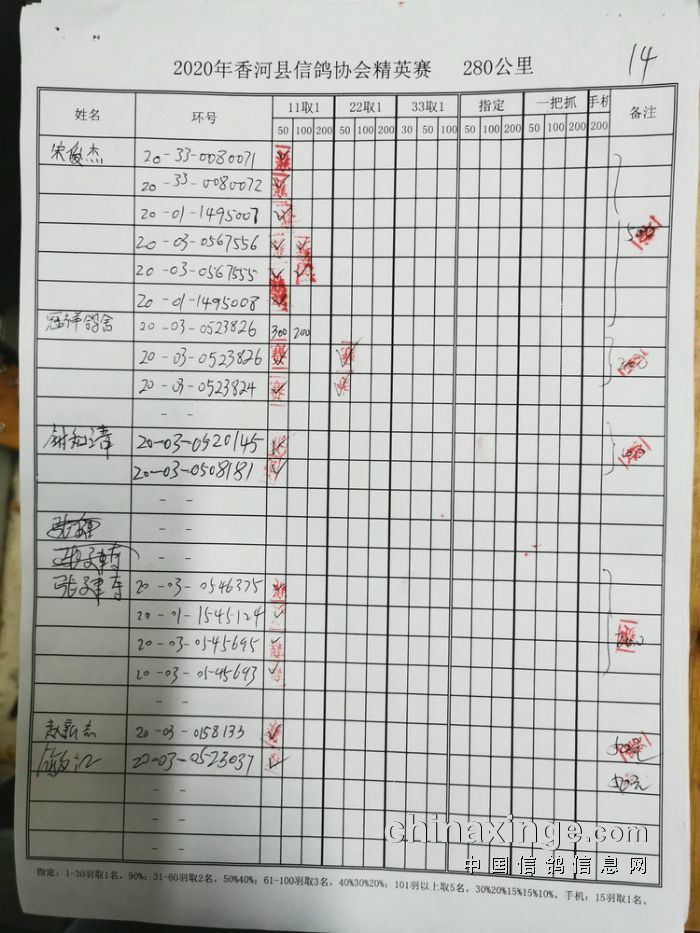 14
2020年香河县信鸽协会精英赛 280公里
姓名 环号 11取1 22取1 33取1 指定 一把抓 手机 备注
50 100 200 50 100 200 30 50 100 50 100 200 50 100 200 200
宋俊杰 20-33-0080071 ✓
20-33-0080072 ✓
20-01-1495007 ✓
20-03-0567556 ✓ ✓
20-03-0567555 ✓ ✓
20-01-1495008 ✓
冠祥鸽舍 20-03-0523826 300 200
20-03-0523826 ✓ ✓
20-03-0523824 ✓ ✓
- -
20-03-0920145 ✓
20-03-0508181 ✓
- -
- -
- -
张建东 20-03-0546375 ✓
20-01-1545124 ✓
20-03-0545695 ✓
20-03-0545693 ✓
- -
20-03-0158133 ✓
20-03-0523037 ✓
50元
- -
- -
- -
chinaxinge.com
中国信鸽信息网
指定：1-30羽取1名，90%；31-60羽取2名，50%40%；61-100羽取3名，40%30%20%；101羽以上取5名，30%20%15%15%10%。手机：15羽取1名。